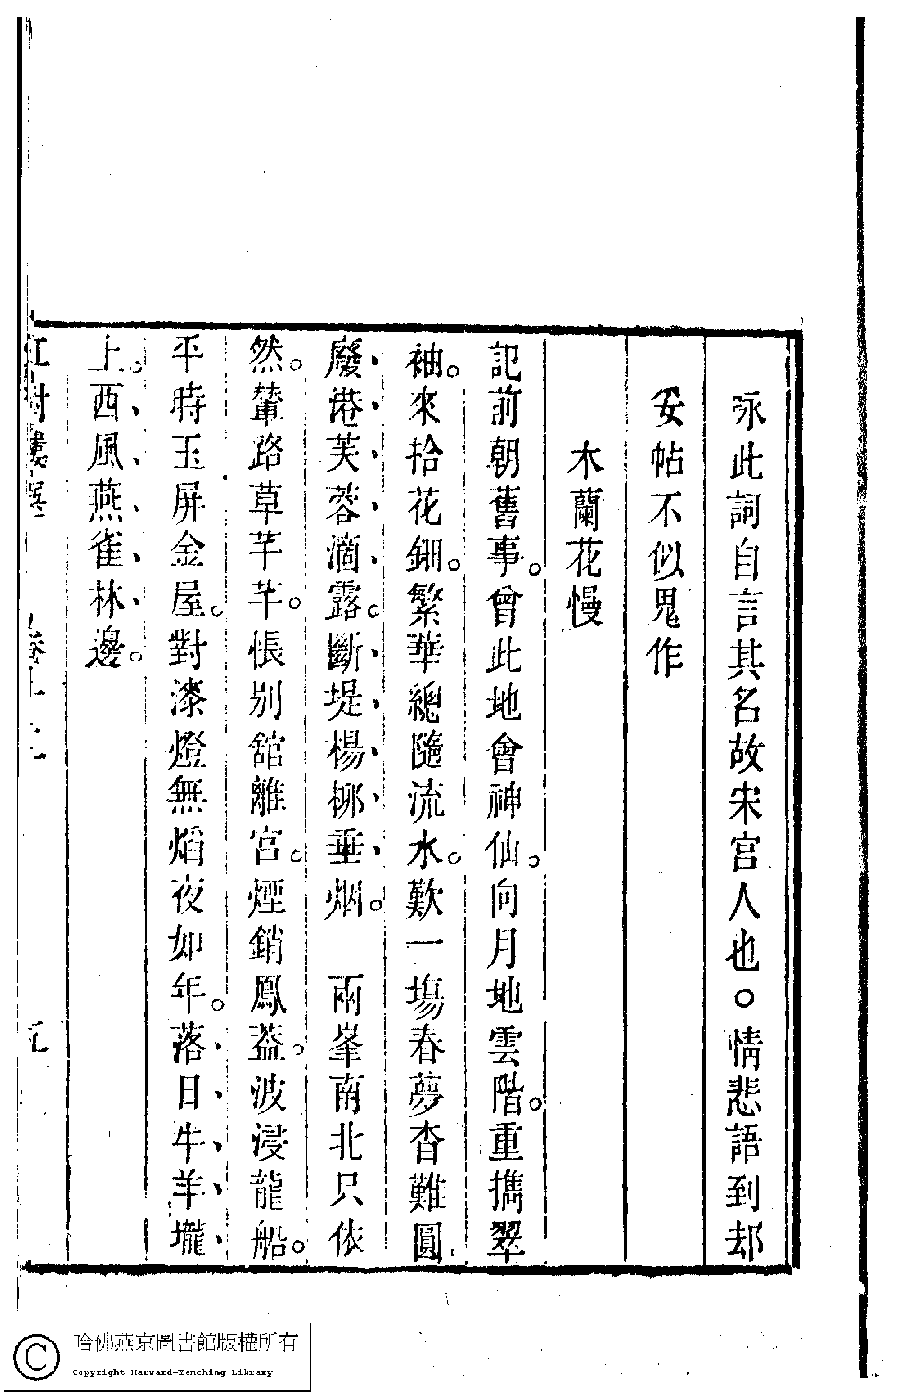 咏此詞自言其名故宋宮人也○情悲語到却
妥帖不似鬼作
木蘭花慢
記前朝舊事。曾此地會神仙。向月地雲階。重擕翠
袖。來拾花鈿。繁華總隨流水。歎一塲春夢杳難圓
廢港芙蓉滴露。斷堤楊栁垂烟。　兩峯南北只依
然。輦路草芊芊。悵别舘離宮。煙銷鳳蓋。波浸龍船。
平時玉屏金屋。對漆燈無熖夜如年。落日牛羊壠
上。西風燕雀林邊。
卷上上
哈佛燕京圖書館版權所有
Copyright Harvard-Yenching Library